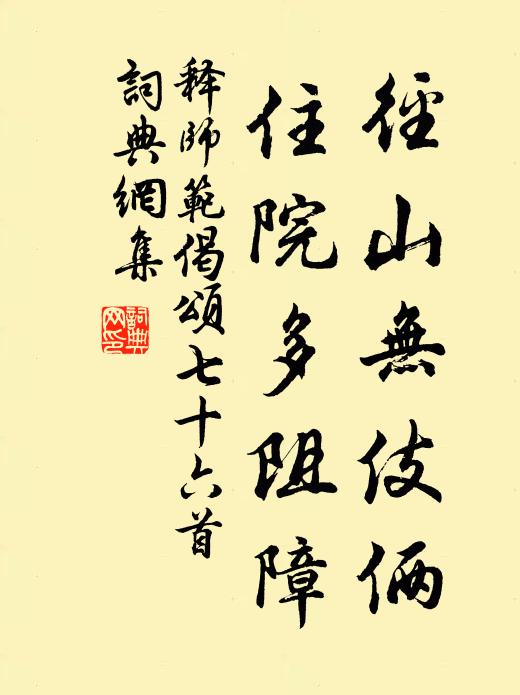 徑山無伎倆
住院多阻障
释師範偈頌七十六首
詞典網集
詞典
网印